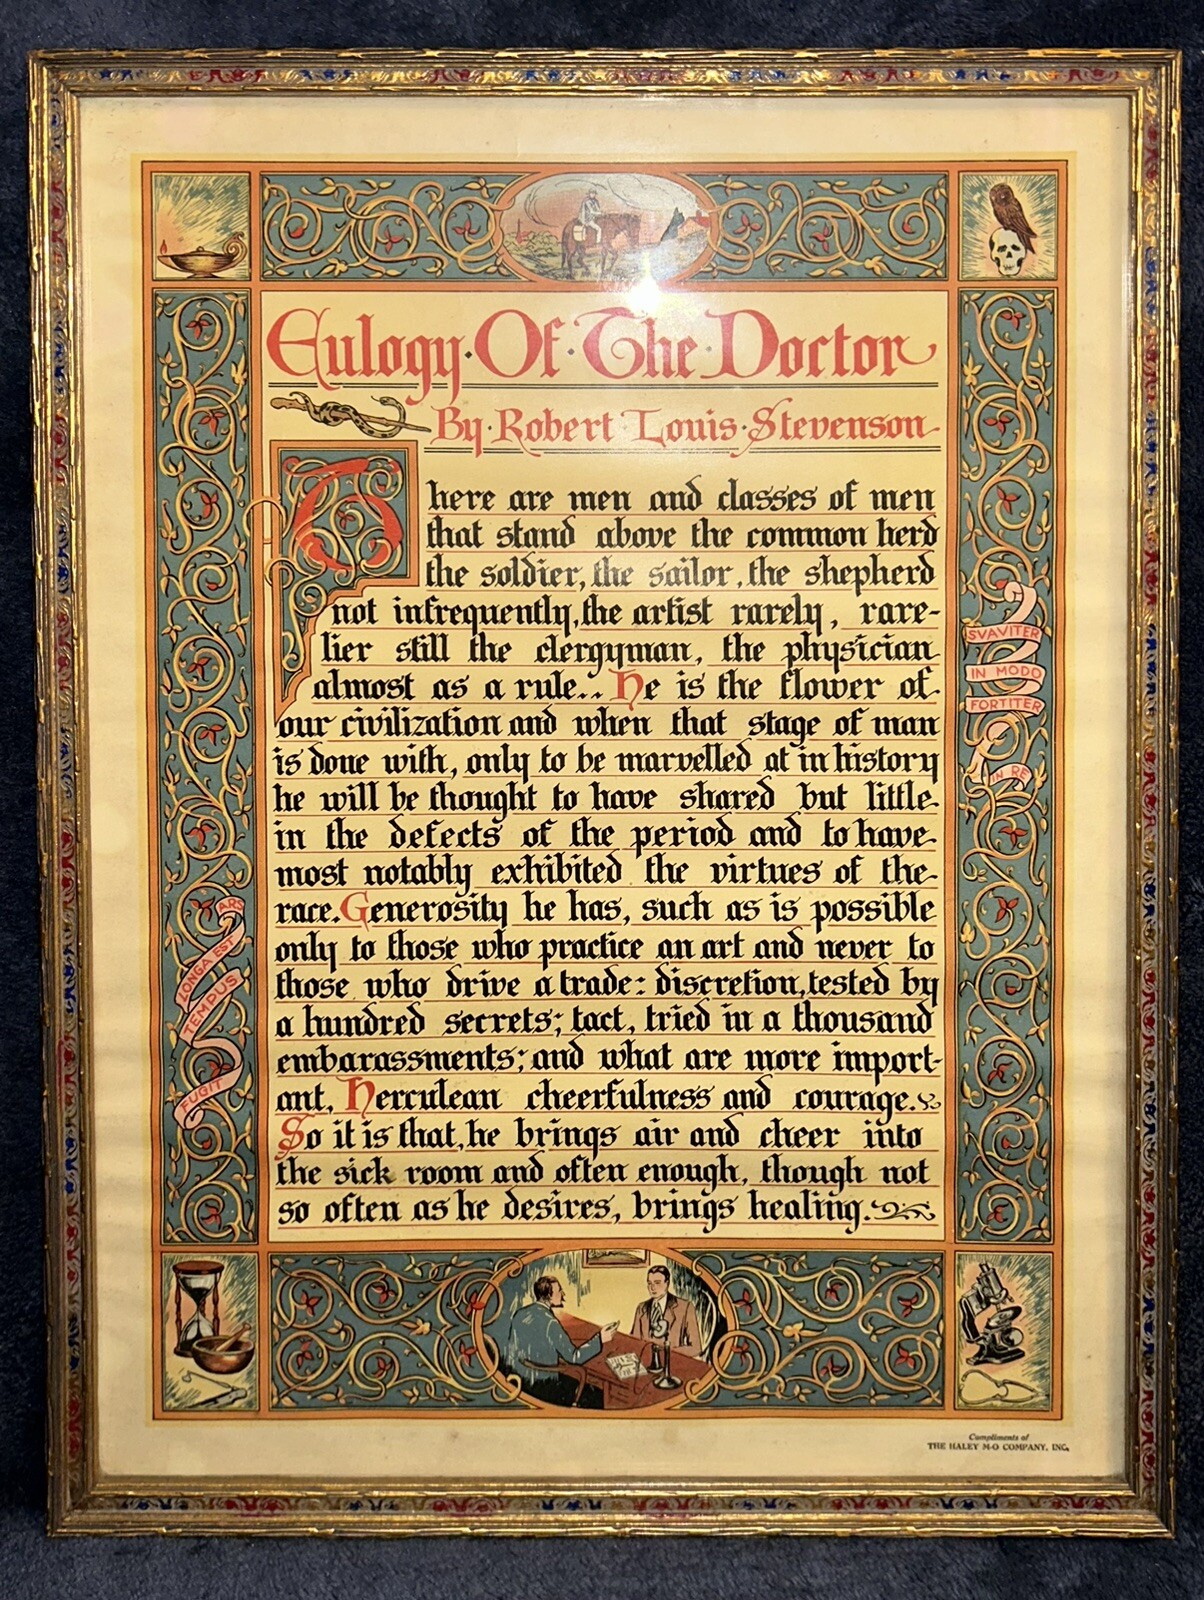 Eulogy·Of·The·Doctor
By·Robert Louis·Stevenson
There are men and classes of men
that stand above the common herd
the soldier, the sailor, the shepherd
not infrequently, the artist rarely, rare-
lier still the clergyman, the physician
almost as a rule.. He is the flower of
our civilization and when that stage of man
is done with, only to be marvelled at in history
he will be thought to have shared but little
in the defects of the period and to have
most notably exhibited the virtues of the
race. Generosity he has, such as is possible
only to those who practice an art and never to
those who drive a trade: discretion, tested by
a hundred secrets; tact, tried in a thousand
embarassments; and what are more import-
ant, Herculean cheerfulness and courage.
So it is that, he brings air and cheer into
the sick room and often enough, though not
so often as he desires, brings healing.
ARS
LONGA EST
TEMPUS
FUGIT
SVAVITER
IN MODO
FORTITER
IN RE
Compliments of
THE HALEY M-O COMPANY, INC.